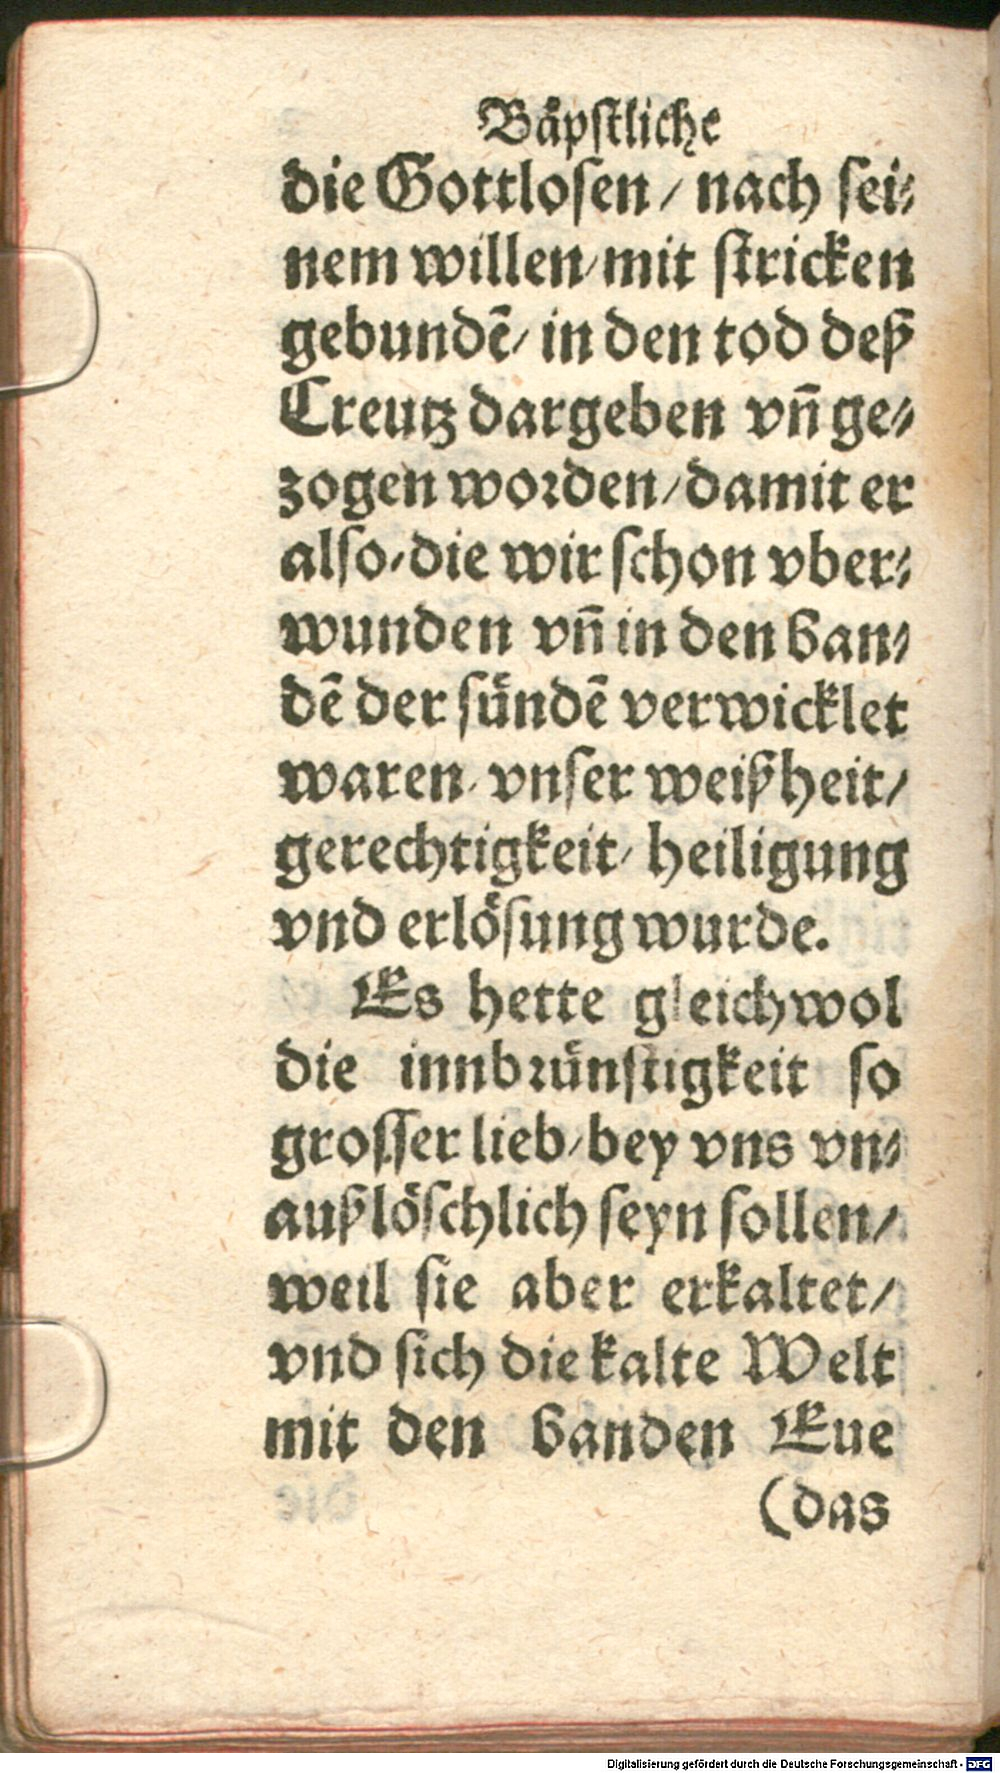 Baͤpſtliche
die Gottloſen / nach ſei⸗
nem willen / mit ſtricken
gebundē / in den tod deß
Creutz dargeben vn̄ ge⸗
zogen worden / damit er
alſo / die wir ſchon vber⸗
wunden vn̄ in den ban⸗
dē der ſuͤndē verwicklet
waren / vnſer weißheit /
gerechtigkeit / heiligung
vnd erloͤſung wurde.
Es hette gleichwol
die innbruͤnſtigkeit ſo
groſſer lieb / bey vns vn⸗
außloͤſchlich ſeyn ſollen /
weil ſie aber erkaltet /
vnd ſich die kalte Welt
mit den banden Eue
(das
Digitalisierung gefördert durch die Deutsche Forschungsgemeinschaft - DFG